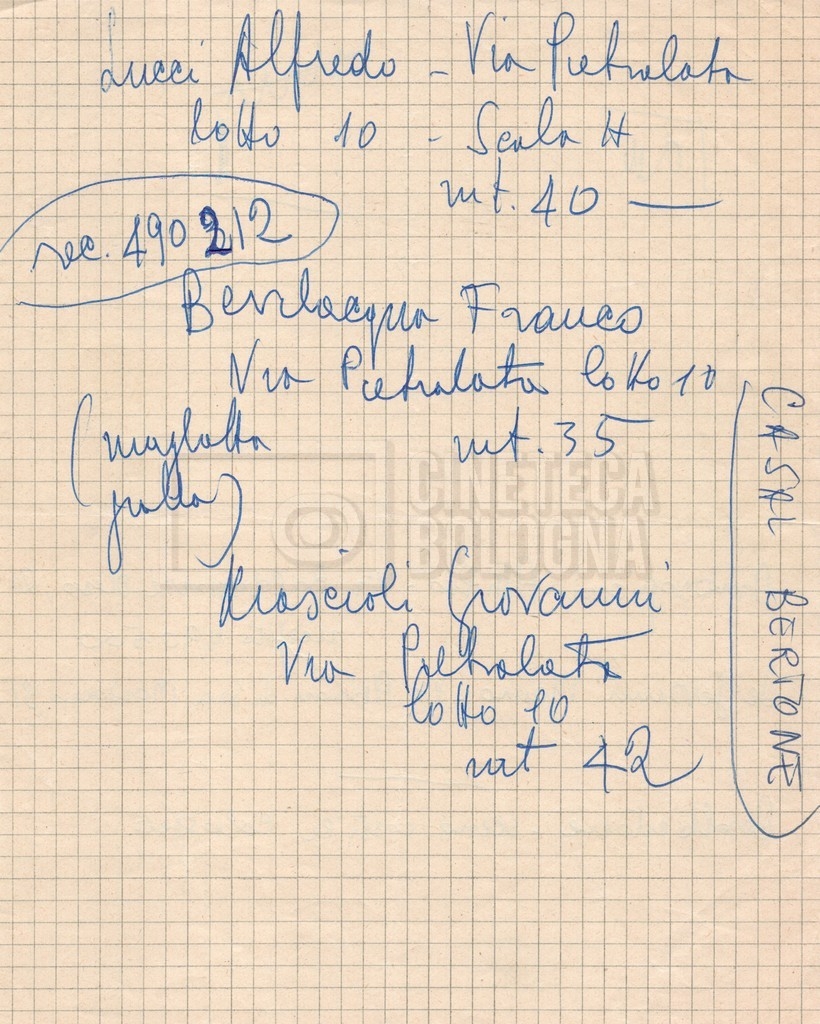 Lucci Alfredo - Via Pietralata
lotto 10 - Scala H
int. 40 —
rec. 490212
Bevilacqua Franco
Via Pietralata lotto 10
(maglietta
gialla)
int. 35
Roscioli Giovanni
Via Pietralata
lotto 10
int 42
CASAL BERTONE
CINETECA
BOLOGNA